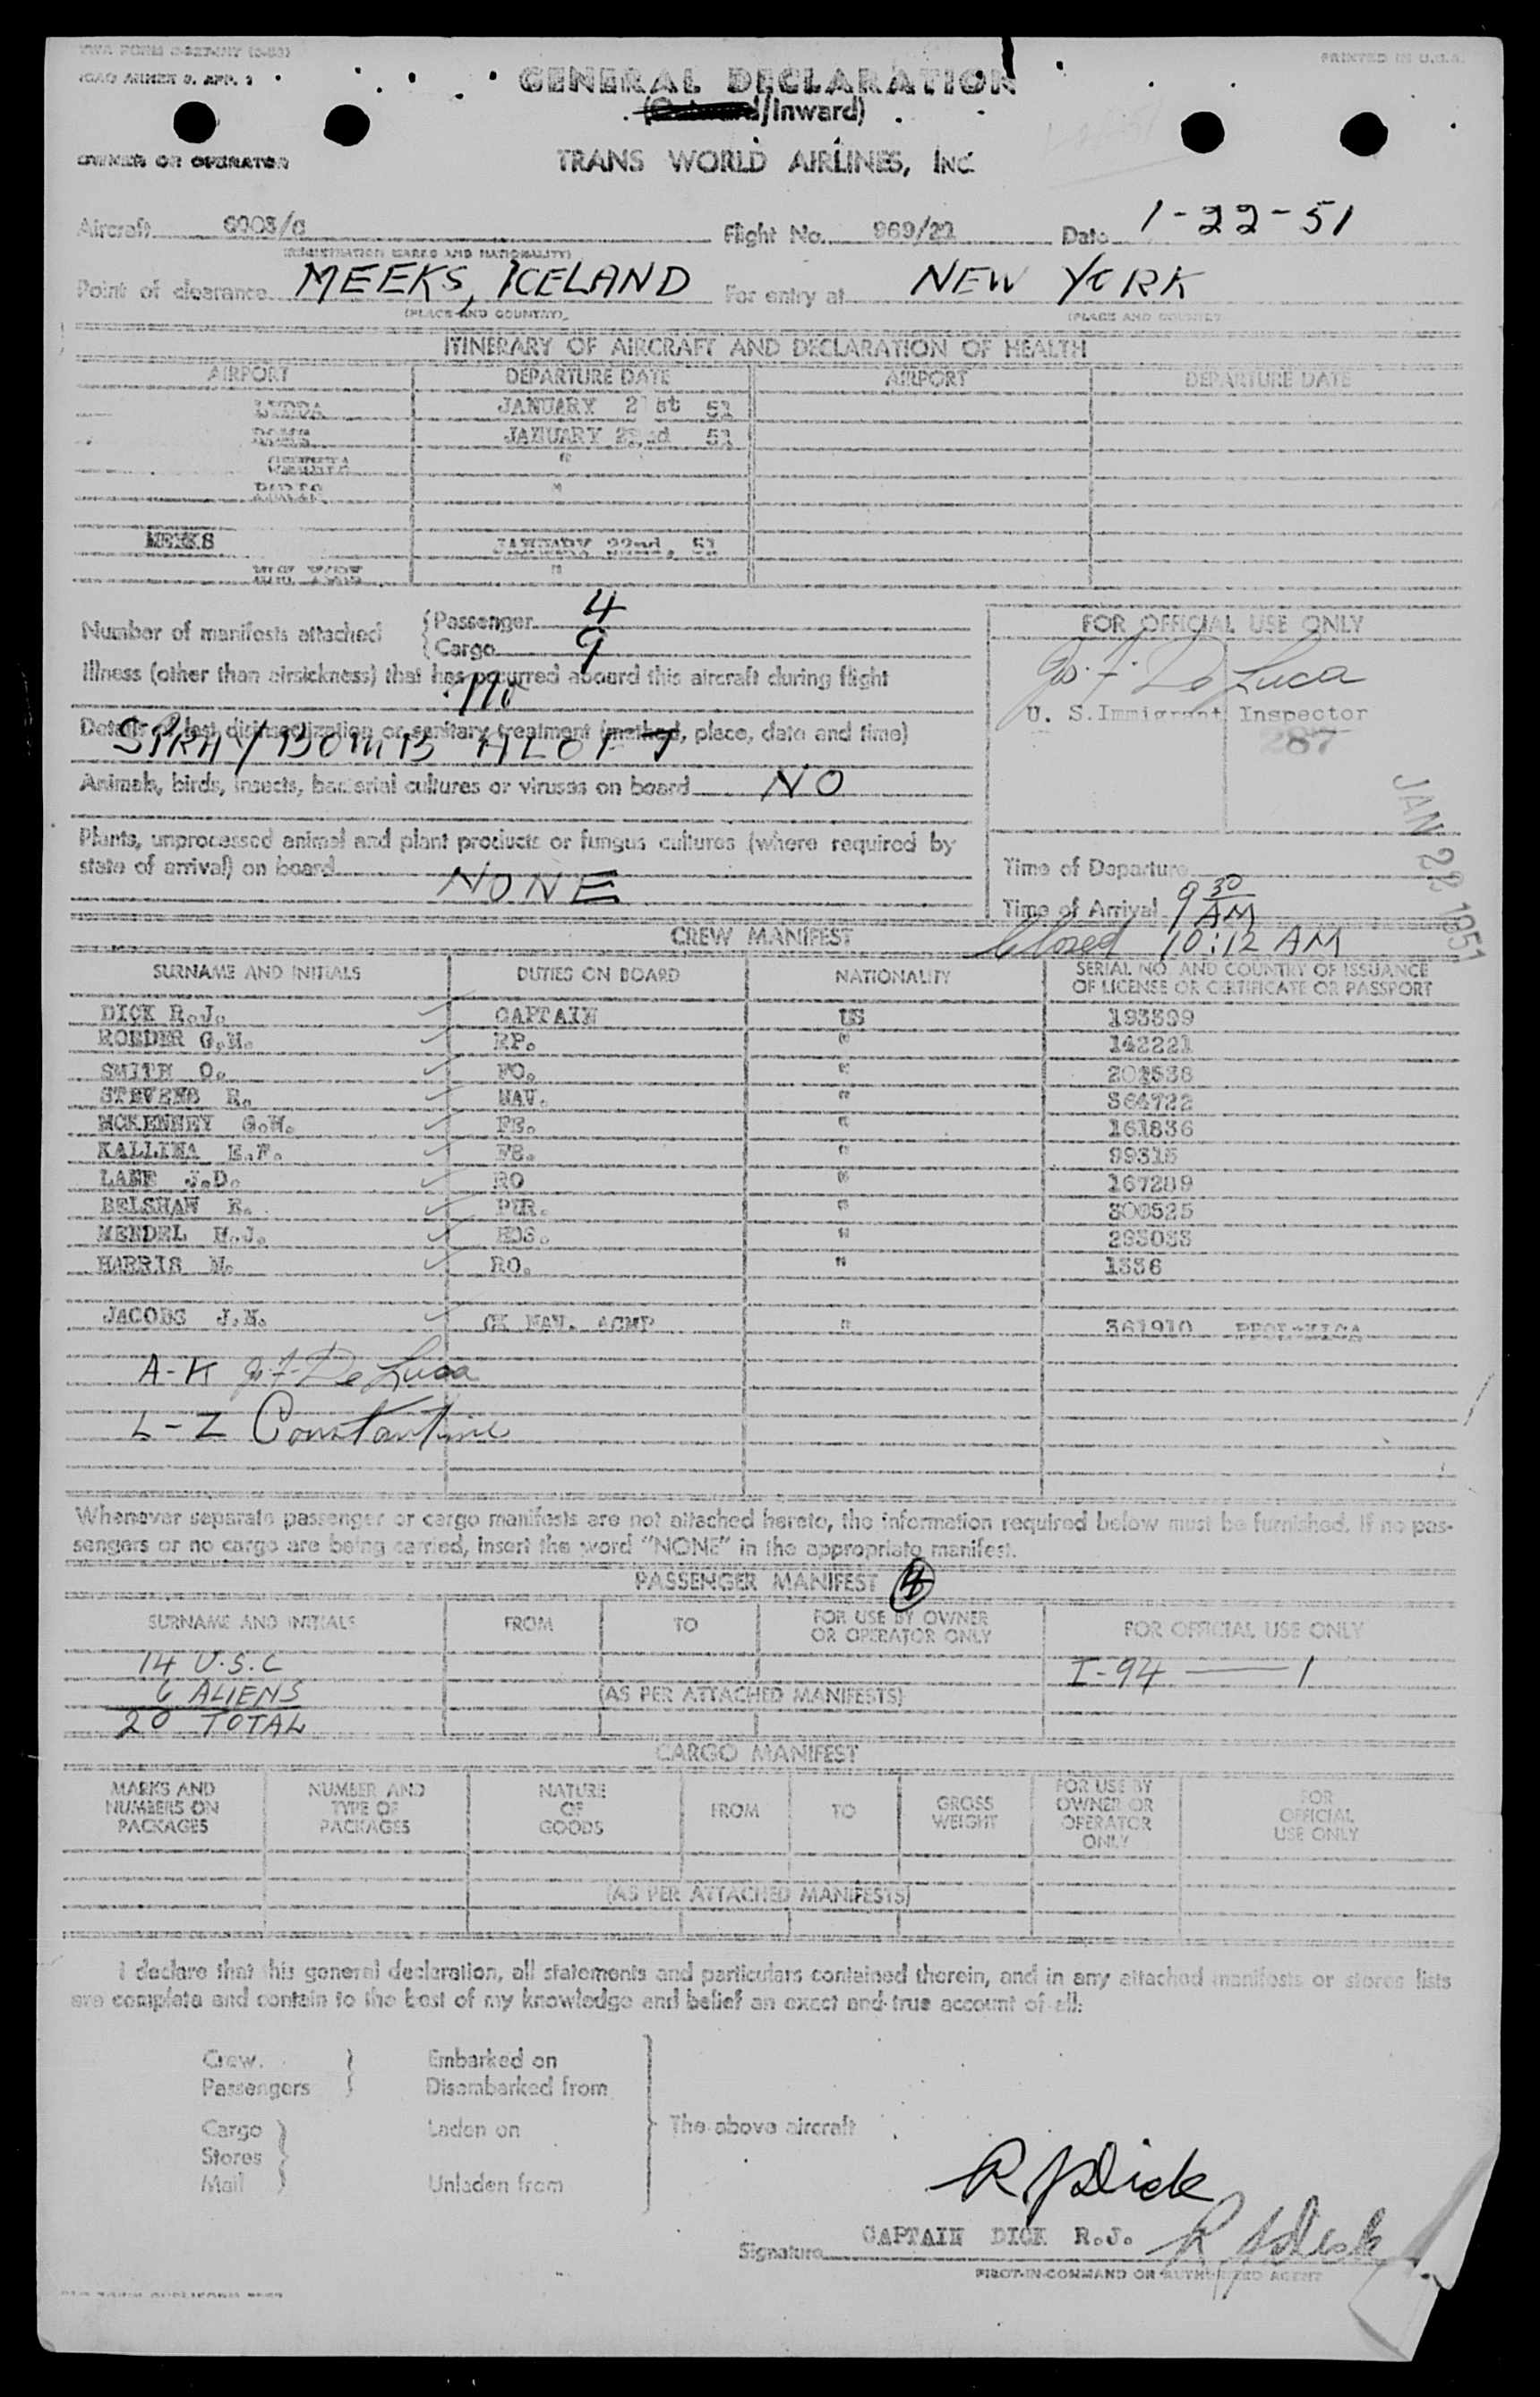 ICAO ANNEX 9, APP. 1
PRINTED IN U.S.A.
GENERAL DECLARATION
(Outward/Inward)
OWNER OR OPERATOR
TRANS WORLD AIRLINES, INC.
Aircraft 6003/C Flight No. 969/22 Date 1-22-51
(REGISTRATION MARKS AND NATIONALITY)
Point of clearance MEEKS, ICELAND For entry at NEW YORK
(PLACE AND COUNTRY) (PLACE AND COUNTRY)
ITINERARY OF AIRCRAFT AND DECLARATION OF HEALTH
AIRPORT DEPARTURE DATE AIRPORT DEPARTURE DATE
LYDDA JANUARY 21st 51
ROME JANUARY 22nd 51
GENEVA "
PARIS "
MEEKS JANUARY 22nd, 51
NEW YORK "
Number of manifests attached { Passenger 4
{ Cargo 9
FOR OFFICIAL USE ONLY
Illness (other than airsickness) that has occurred aboard this aircraft during flight
No
Jos. F. De Luca
U. S. Immigrant Inspector
287
Details of last disinsectization or sanitary treatment (method, place, date and time)
SPRAY BOMB ALOFT
Animals, birds, insects, bacterial cultures or viruses on board NO
JAN 22 1951
Plants, unprocessed animal and plant products or fungus cultures (where required by
state of arrival) on board NONE
Time of Departure
Time of Arrival 9 30 AM
Closed 10:12 AM
CREW MANIFEST
SURNAME AND INITIALS DUTIES ON BOARD NATIONALITY SERIAL NO. AND COUNTRY OF ISSUANCE
OF LICENSE OR CERTIFICATE OR PASSPORT
DICK R.J. CAPTAIN US 193599
ROEDER G.H. RP. " 142221
SMITH O. FO. " 203538
STEVENS R. NAV. " 364722
MCKENNEY G.W. FE. " 161836
KALLINA E.F. FE. " 99315
LANE J.D. RO " 167289
BELSHAW R. PUR. " 300525
MENDEL H.J. HOS. " 293033
HARRIS M. RO. " 1336
JACOBS J.N. CK NAV. ACMP " 361910
A-K Jos. F. De Luca
L-Z Constantine
Whenever separate passenger or cargo manifests are not attached hereto, the information required below must be furnished. If no pas-
sengers or no cargo are being carried, insert the word "NONE" in the appropriate manifest.
PASSENGER MANIFEST 4
SURNAME AND INITIALS FROM TO FOR USE BY OWNER
OR OPERATOR ONLY FOR OFFICIAL USE ONLY
14 U.S.C I-94 — 1
6 ALIENS (AS PER ATTACHED MANIFESTS)
20 TOTAL
CARGO MANIFEST
MARKS AND
NUMBERS ON
PACKAGES
NUMBER AND
TYPE OF
PACKAGES
NATURE
OF
GOODS
FROM
TO
GROSS
WEIGHT
FOR USE BY
OWNER OR
OPERATOR
ONLY
FOR
OFFICIAL
USE ONLY
(AS PER ATTACHED MANIFESTS)
I declare that this general declaration, all statements and particulars contained therein, and in any attached manifests or stores lists
are complete and contain to the best of my knowledge and belief an exact and true account of all:
Crew } Embarked on
Passengers } Disembarked from
Cargo } Laden on The above aircraft
Stores
Mail } Unladen from
R J Dick
Signature CAPTAIN DICK R.J. R J Dick
PILOT-IN-COMMAND OR AUTHORIZED AGENT